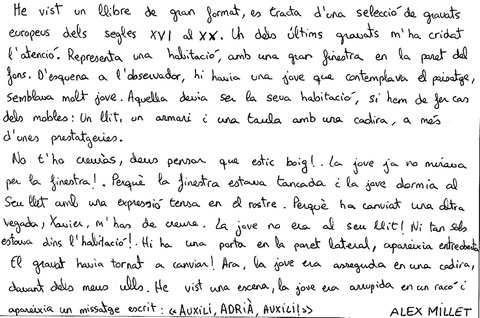 He vist un llibre de gran format, es tracta d'una selecció de gravats
europeus dels segles XVI al XX. Un dels últims gravats m'ha cridat
l'atenció. Representa una habitació, amb una gran finestra en la paret del
fons. D'esquena a l'observador, hi havia una jove que contemplava el paisatge,
semblava molt jove. Aquella devia ser la seva habitació, si hem de fer cas
dels mobles: Un llit, un armari i una taula amb una cadira, a més
d'unes prestatgeries.
No t'ho creuràs, deus pensar que estic boig!. La jove ja no mirava
per la finestra!. Perquè la finestra estava tancada i la jove dormia al
seu llet amb una expressió tensa en el rostre. Perquè ha canviat una altra
vegada, Xavier, m'has de creure. La jove no era al seu llit! Ni tan sols
estava dins l'habitació!. Hi ha una porta en la paret lateral, apareixia entreoberta
El gravat havia tornat a canviar! Ara, la jove era asseguda en una cadira,
davant dels meus ulls. He vist una escena, la jove era arrupida en un racó i
apareixia un missatge escrit: «AUXILI, ADRIÀ, AUXILI!»
ALEX MILLET